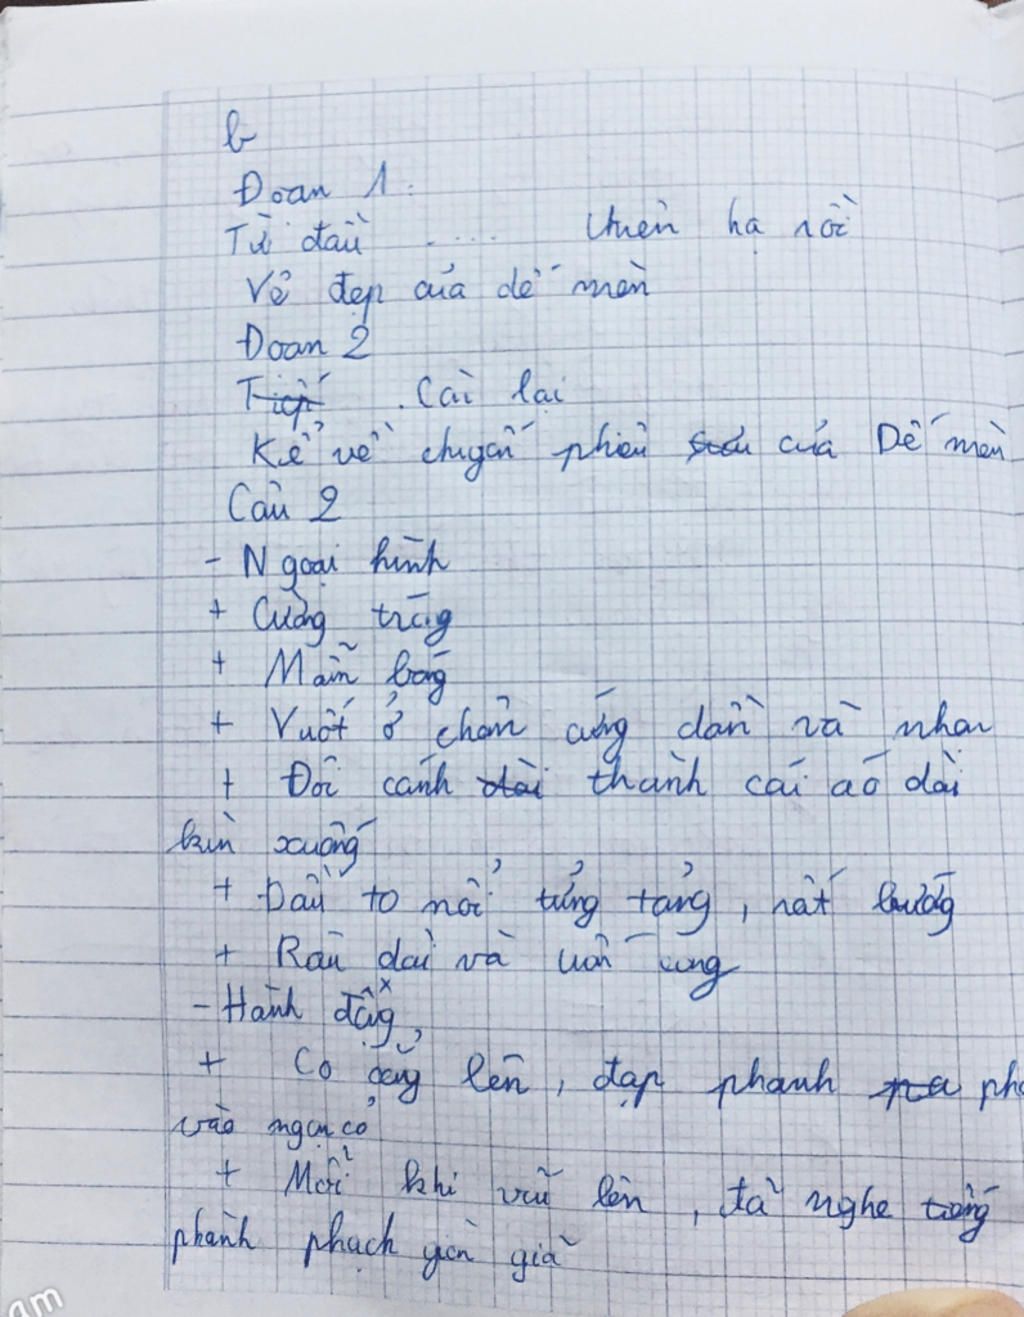 b
Đoan 1:
Từ đầu ..... thiên hạ rồi
Vẻ đẹp của dế mèn
Đoan 2
Tiếp . Còi lại
Kể về chuyến phiêu của Dế mèn
Câu 2
- Ngoại hình
+ Cường tráng
+ Mẫm bóng
+ Vuốt ở chân cứng dần và nhọn
+ Đôi cánh dài thành cái áo dài
kín xuống
+ Đầu to nổi từng tảng, rất bướng
+ Râu dài và uốn cong
- Hành động
+ Co cẳng lên, đạp phanh phá
vào ngọn cỏ
+ Mỗi khi vũ lên, đã nghe tiếng
phành phạch giòn giã
am